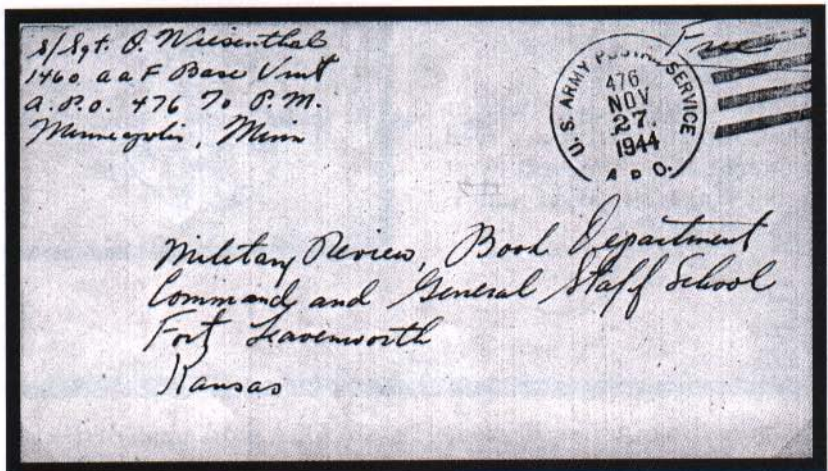 S/Sgt. O. Wiesenthal
1460 aaF Base Unit
A.P.O. 476 % P.M.
Minneapolis, Minn
Free
U.S. ARMY POSTAL SERVICE
476
NOV
27.
1944
A.P.O.
Military Review, Book Department
Command and General Staff School
Fort Leavenworth
Kansas